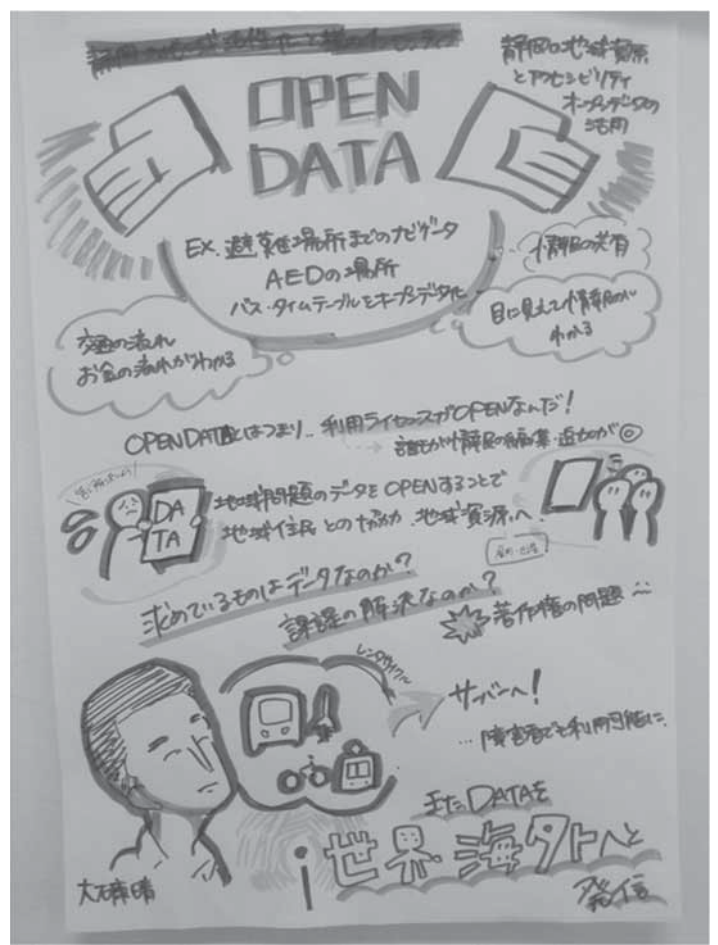 静岡の地域資源
とアクセシビリティ
オープンデータの
活用
OPEN
DATA
EX. 避難場所までのナビゲータ
AEDの場所
バス・タイムテーブルをオープンデータ化
情報の共有
目に見えて情報が
わかる
交通の流れ
お金の流れがわかる
OPEN DATAとはつまり.. 利用ライセンスがOPENなんだ!
誰もが情報の編集・追加が◎
DA
TA
地域問題のデータをOPENすることで
地域住民との 地域資源へ
求めているものはデータなのか?
課題の解決なのか?
著作権の問題
レンタサイクル
サーバーへ!
…障害者でも利用可能に
またDATAを
世界 海外へと
発信